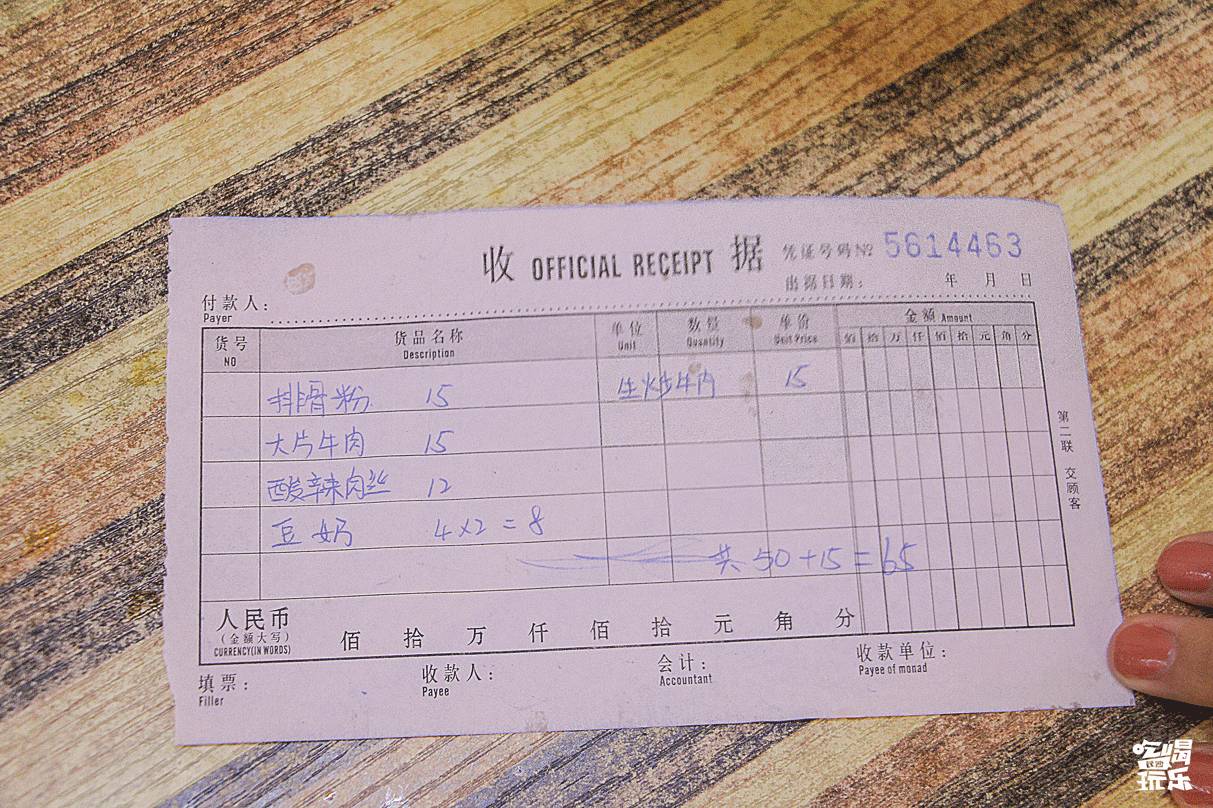 收 OFFICIAL RECEIPT 据
凭证号码№ 5614463
出据日期: 年 月 日
付款人:
Payer
货号 货品名称 单位 数量 单价 金额 Amount
NO Description Unit Quantity Unit Price 佰 拾 万 仟 佰 拾 元 角 分
排骨粉 15 生炒牛肉 15
大片牛肉 15
酸辣肉丝 12
豆奶 4×2=8
共 50+15=65
人民币
(金额大写) 佰 拾 万 仟 佰 拾 元 角 分
CURRENCY(IN WORDS)
填票: 收款人: 会计: 收款单位:
Filler Payee Accountant Payee of monad
第二联 交顾客
吃喝
玩乐